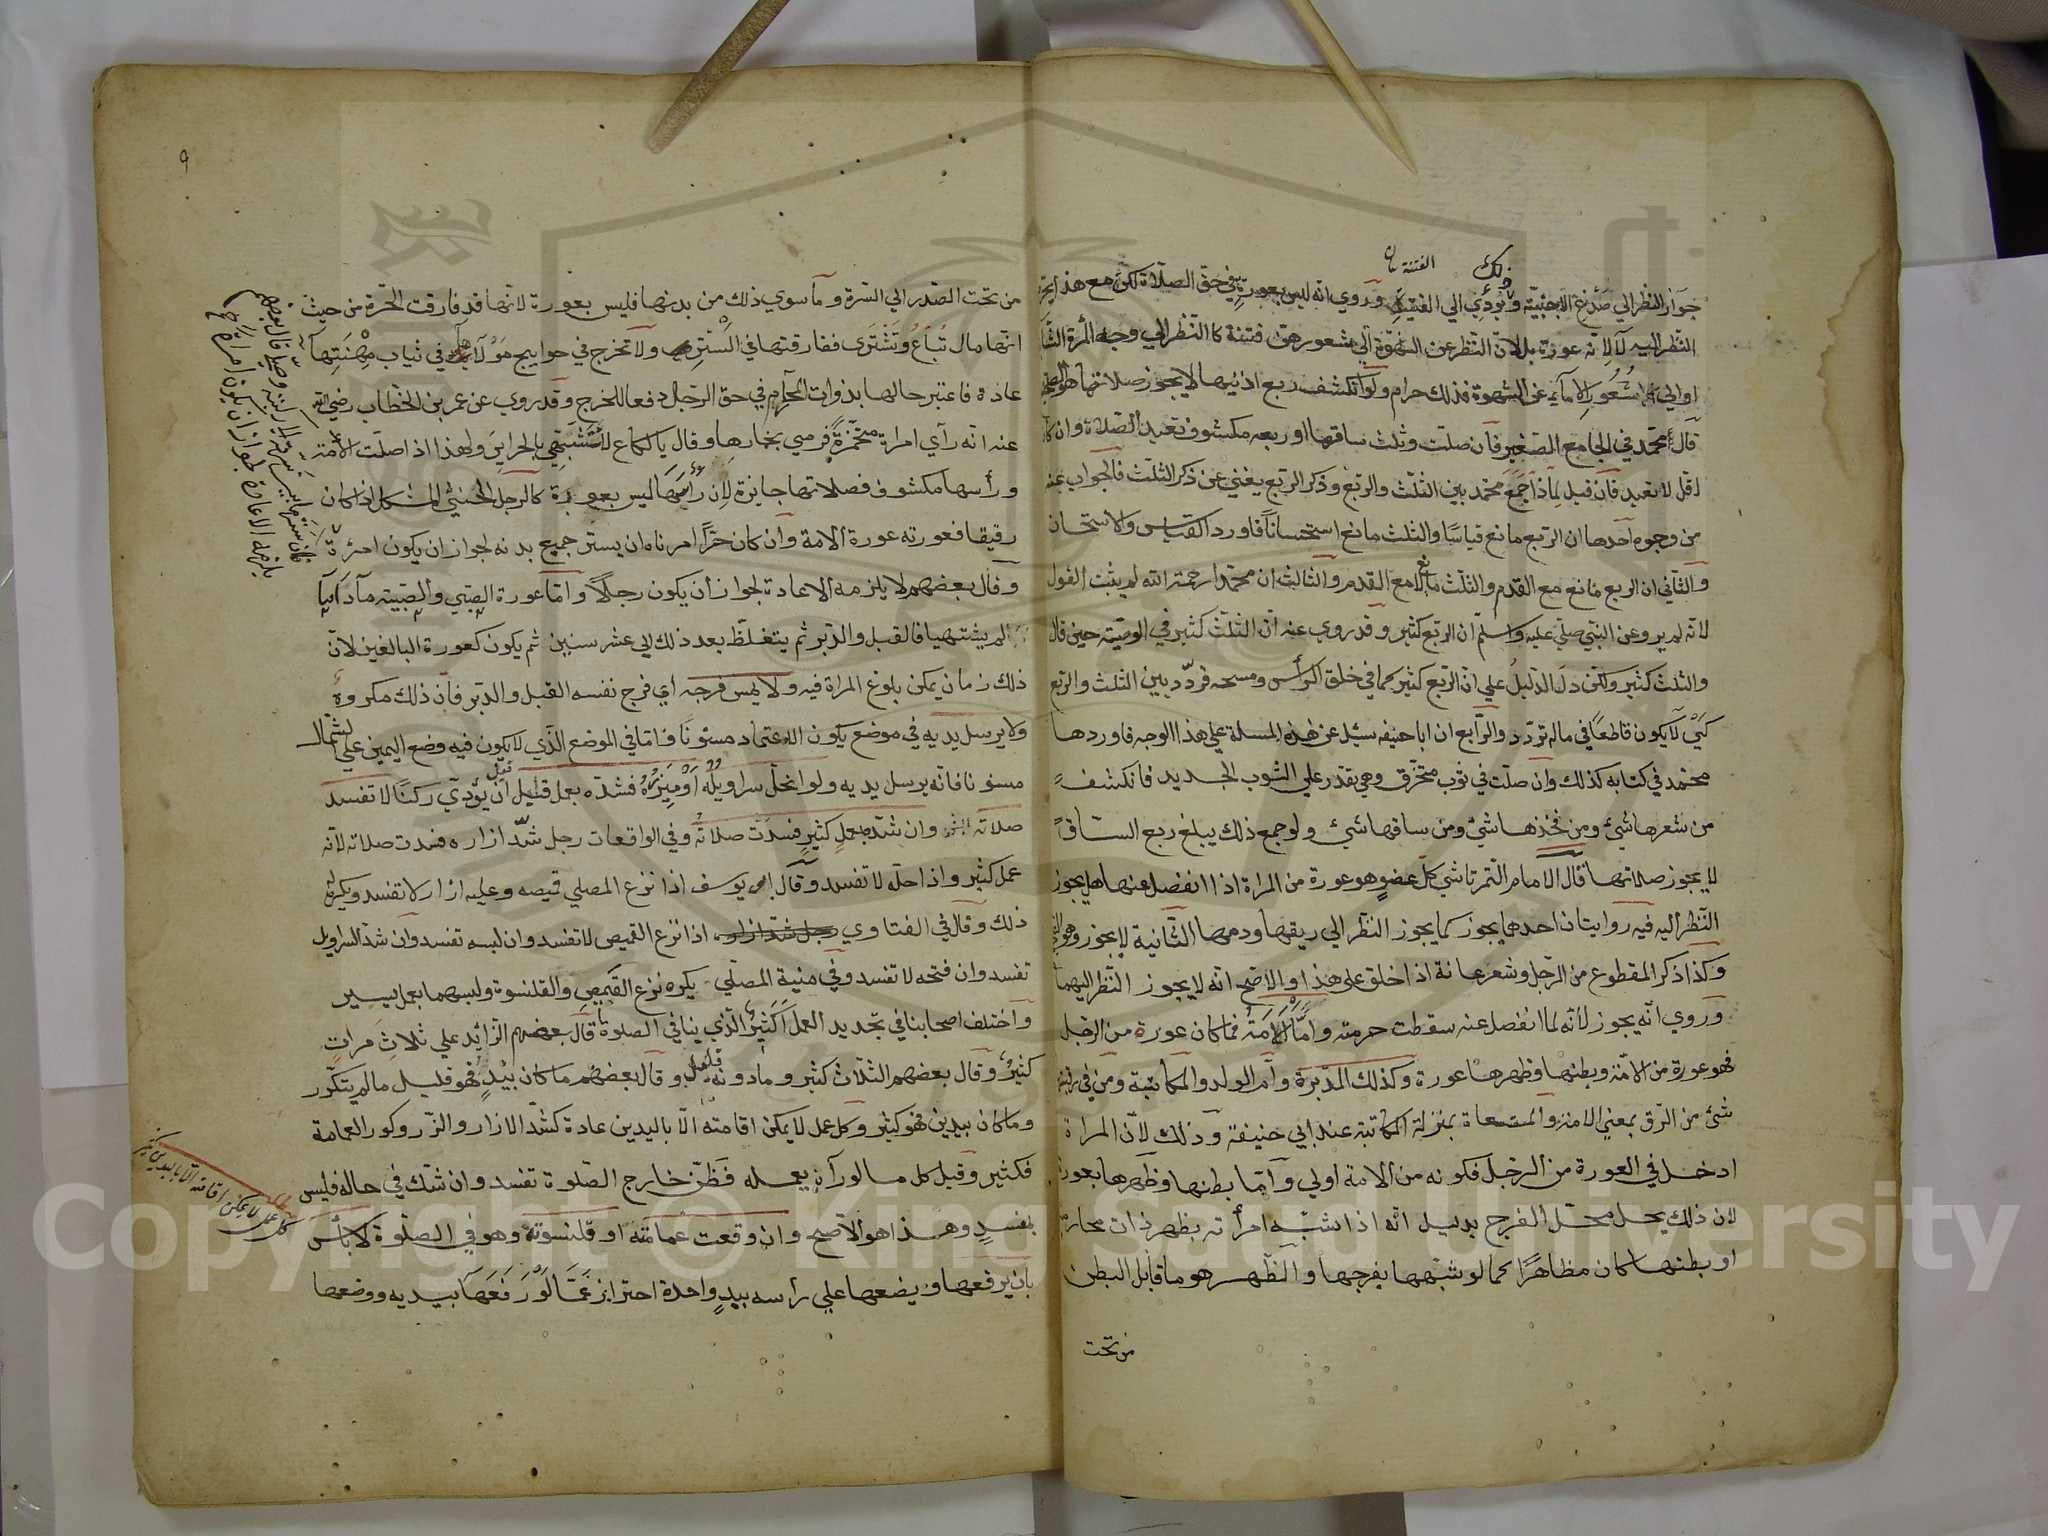 ذلك الفتنة
جواز النظر الي صدغ الاجنبية ويؤدي الي الفتنة وروي انه ليس بعورة في حق الصلاة لكن مع هذا يحرم
النظر اليه لا لانه عورة بل لان النظر عن الشهوة الي شعورهن فتنة كالنظر الي وجه المرأة
او الي شعور الاماء عن الشهوة فذلك حرام ولو انكشف ربع اذنيها لا يجوز صلاتها هو الصحيح
قال محمد في الجامع الصغير فان صلت وثلث ساقها او ربعه مكشوف تعيد الصلاة وان كان
اقل لا تعيد فان قيل لماذا جمع محمد بين الثلث والربع وذكر الربع يغني عن ذكر الثلث فالجواب عنه
من وجوه احدها ان الربع مانع قياسا والثلث مانع استحسانا فاورد القياس والاستحسان
والثاني ان الربع مانع مع القدم والثلث مانع لا مع القدم والثالث ان محمدا رحمه الله لم يثبت القول
لانه لم يرو عن النبي صلي عليه وسلم ان الربع كثير وقد روي عنه ان الثلث كثير في الوصية حين قال
والثلث كثير ولكن دل الدليل علي ان الربع كثير كما في حلق الرأس ومسحه فردد بين الثلث والربع
كي لا يكون قاطعا في ماله تردد والرابع ان ابا حنيفه سئل عن هذه المسلة علي هذا الوجه فاوردها
محمد في كتابه كذلك وان صلت في ثوب متخرق وهي تقدر علي الثوب الجديد فانكشف
من شعرها شئ ومن فخذها شئ ومن ساقها شئ ولو جمع ذلك يبلغ ربع الساق
لا يجوز صلاتها قال الامام التمرتاشي كل عضو هو عورة من المراة اذا انفصل عنها هل يجوز
النظر اليه فيه روايتان احدهما يجوز كما يجوز النظر الي ريقها ودمها الثانية لا يجوز وهو
وكذا ذكر المقطوع من الرجل وشعر عانة اذا حلق علي هذا والاصح انه لا يجوز النظر اليهما
وروي انه يجوز لانه لما انفصل عنه سقطت حرمته واما الامة فما كان عورة من الرجل
فهو عورة من الامة وبطنها وظهرها عورة وكذلك المدبرة وام الولد والمكاتبة ومن في رقبته
شئ من الرق بمعني الامة والمستسعاة بمنزلة المكاتبة عند ابي حنيفة وذلك لان المراة
ادخل في العورة من الرجل فكونه من الامة اولي واما بطنها وظهرها بعورة
لان ذلك يحل محل الفرج بدليل انه اذا شبه امرأته بظهر ذات محارمه
او بطنها كان مظاهرا كما لو شبهها بفرجها والظهر هو ما قابل البطن
من تحت
٩
من تحت الصدر الي السرة وما سوي ذلك من بدنها فليس بعورة لانها قد فارقت الحرة من حيث
انها مال تباع وتشترى ففارقتها في الستر ولا تخرج في حوايج مولاها في ثياب مهنتها
عادة فاعتبر حالها بذوات المحارم في حق الرجل دفعا للحرج وقد روي عن عمر بن الخطاب رضي الله
عنه انه رأي امراة متخمرة فرمي بخمارها وقال يا لكاع لا تتشبهي بالحراير ولهذا اذا صلت الامة
ورأسها مكشوف فصلاتها جايزة لان رأسها ليس بعورة كالرجل الخنثي المشكل اذا كان
رقيقا فعورته عورة الامة وان كان حرا امرناه ان يستر جميع بدنه لجواز ان يكون امرئة
وقال بعضهم لا يلزمه الاعادة لجواز ان يكون رجلا واما عورة الصبي والصبية ما داما
لم يشتهيا فالقبل والدبر ثم يتغلظ بعد ذلك الي عشر سنين ثم يكون كعورة البالغين لان
ذلك زمان يمكن بلوغ المراة فيه ولا يمس فرجه اي فرج نفسه القبل والدبر فان ذلك مكروه
ولا يرسل يديه في موضع يكون الاعتماد مسنونا فاما في الموضع الذي لا يكون فيه وضع اليمين علي الشمال
مسنونا فانه يرسل يديه ولو انحل سراويله او ميزره فشده بعمل قليل قبل ان يؤدي ركنا لا تفسد
صلاته وان شده بعمل كثير فسدت صلاته وفي الواقعات رجل شد ازاره فسدت صلاته لانه
عمل كثير واذا حله لا تفسد وقال ابو يوسف اذا نزع المصلي قميصه وعليه ازار لا تفسد ويكره
ذلك وقال في الفتاوي اذا نزع القميص لا تفسد وان لبسه تفسد وان شد السراويل
تفسد وان فتحه لا تفسد وفي منية المصلي يكره نزع القميص والقلنسوة ولبسهما بعمل يسير
واختلف اصحابنا في تحديد العمل الكثير الذي ينافي الصلوة قال بعضهم الزائد علي ثلاث مرات
كثير وقال بعضهم الثلاث كثير وما دونه قليل وقال بعضهم ما كان بيد فهو قليل ما لم يتكرر
وما كان بيدين فهو كثير وكل عمل لا يمكن اقامته الا باليدين عادة كشد الازار والزر وكور العمامة
فكثير وقيل كل ما لو رآه يعمله فظن خارج الصلوة تفسد وان شك في حاله فليس
بمفسد وهذا هو الاصح وان وقعت عمامته او قلنسوته وهو في الصلوة لا بأس
بان يرفعها ويضعها علي رأسه بيد واحدة احترازا عما لو رفعها بيديه ووضعها
كل عمل لا يمكن اقامته الا باليدين كثير